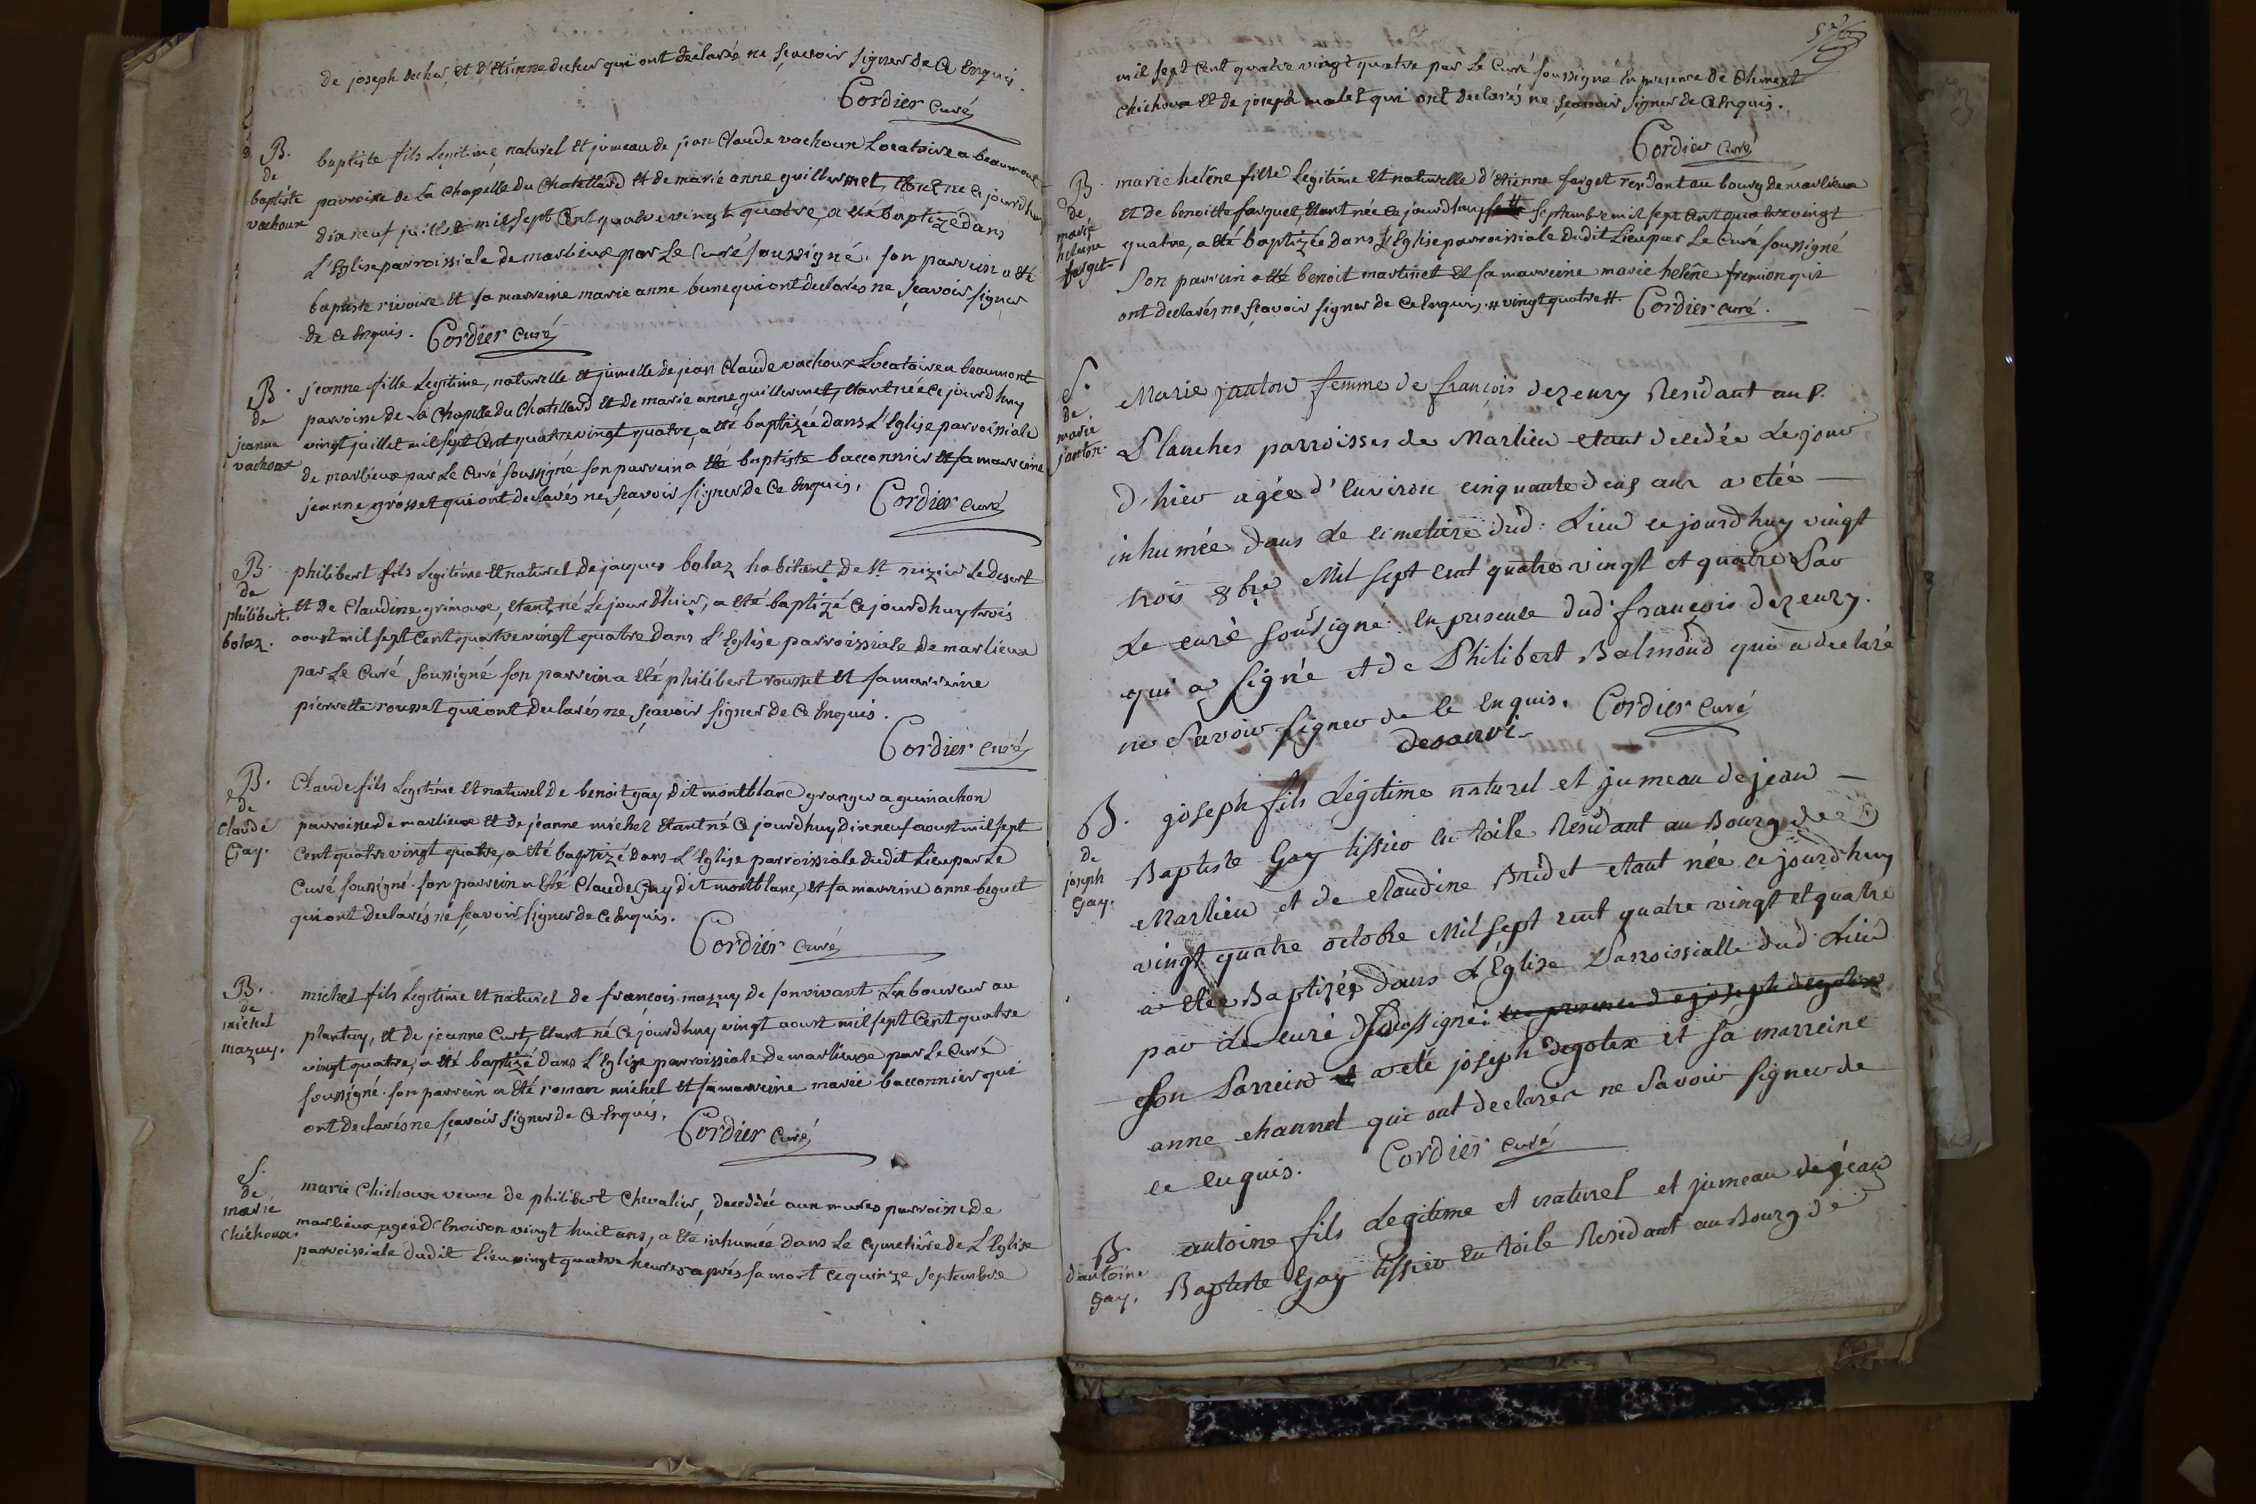 de joseph decher et d'Etienne decher qui ont declarés ne sçavoir signer de ce Enquis.
Cordier curé
B.
de
baptiste
vachoux
baptiste fils Legitime, naturel et jumeau de jean Claude vachoux Locataire a beaumont
parroisse de La Chapelle du Chatellard et de marie anne guillermet, Etant né ce jourd huy
dix neuf juillet mil sept Cent quatre vingt quatre, a eté baptizé dans
L'Eglise parroissiale de marlieux par Le Curé soussigné. son parrein a eté
baptiste rivoire et sa marreine marie anne bune qui ont declarés ne sçavoir signer
de ce Enquis. Cordier curé
B.
de
jeanne
vachoux
jeanne fille Legitime, naturelle et jumelle de jean Claude vachoux Locataire a beaumont
parroisse de La Chapelle du Chatellard et de marie anne guillermet, etant née ce jourd huy
vingt juillet mil sept Cent quatre vingt quatre, a eté baptizée dans L'Eglise parroissiale
de marlieux par Le Curé soussigné son parrein a eté baptiste bacconnier et sa marreine
jeanne grosset qui ont declarés ne sçavoir signer de ce Enquis. Cordier curé
B.
de
philibert
bolaz.
philibert fils Legitime et naturel de jacques bolaz habitant de St nizier Le desert
et de Claudine grimoux, etant né Le jour d'hier, a eté baptizé ce jourd huy trois
aoust mil sept Cent quatre vingt quatre dans L'Eglise parroissiale de marlieux
par Le Curé soussigné son parrein a eté philibert rousset et sa marreine
pierrette rousset qui ont declarés ne sçavoir signer de ce Enquis.
Cordier curé
B.
de
Claude
Gay.
Claude fils Legitime et naturel de benoit gay dit montblanc granger a guinachon
parroisse de marlieux et de jeanne michel etant né ce jourd huy dix neuf aoust mil sept
Cent quatre vingt quatre, a eté baptizé dans L'Eglise parroissiale dudit Lieu par Le
Curé soussigné. son parrein a eté Claude Gay dit montblanc, et sa marreine anne beguet
qui ont declarés ne sçavoir signer de ce Enquis.
Cordier curé
B.
de
michel
mazuy.
michel fils Legitime et naturel de françois mazuy de son vivant Laboureur au
plantay, et de jeanne Curt, etant né ce jourd huy vingt aoust mil sept Cent quatre
vingt quatre, a eté baptizé dans L'Eglise parroissiale de marlieux par Le Curé
soussigné. son parrein a eté roman michel et sa marreine marie bacconnier qui
ont declarés ne sçavoir signer de ce Enquis. Cordier curé
S.
de
marie
Chichoux.
marie Chichoux veuve de philibert Chevalier, decedée aux mures parroisse de
marlieux agée d'Environ vingt huit ans, a eté inhumée dans Le Cymetiere de L'Eglise
parroissiale dudit Lieu vingt quatre heures après sa mort ce quinze septembre
mil sept Cent quatre vingt quatre par Le Curé soussigné En presence de Climent
Chichoux et de joseph malet qui ont declarés ne sçavoir signer de ce Enquis.
Cordier curé
B.
de
marie
helene
farget
marie helêne fille Legitime et naturelle d'Etienne farget residant au bourg de marlieux
et de benoitte farquet, Etant née ce jourd huy septembre mil sept Cent quatre vingt
quatre, a eté baptizée dans L'Eglise parroissiale dudit Lieu par Le Curé soussigné
Son parrein a eté benoit martinet et sa marreine marie helêne fremion qui
ont declarés ne sçavoir signer de ce Enquis. # vingt quatre #. Cordier curé.
S.
de
marie
janton.
Marie janton femme de françois dezeury Residant aux
Planches parroisses de Marlieu etant decedée Le jour
d'hier agée d'Environ cinquante deux ans a etée
inhumée dans Le cimetiere dud: Lieu ce jourd huy vingt
trois 8bre Mil sept cent quatre vingt et quatre Par
Le curé sousigné: En presence dud: françois dezeury.
qui a signé et de Philibert Balmond qui a declaré
ne Savoir signer de Ce Enquis. Cordier curé
desauvi
B.
de
joseph
Gay.
joseph fils Legitime naturel et jumeau de jean
Baptiste Gay tissier En toille Residant au Bourg de
Marlieu et de claudine Bridet etant née ce jourd huy
vingt quatre octobre Mil sept cent quatre vingt et quatre
a etée Baptizée dans L'Eglise Parroissialle dud: Lieu
par Le curé soussigné:
Son Parrein a eté joseph degotex et sa marreine
anne channet qui ont declarer ne Savoir signer de
ce Enquis. Cordier curé
B.
d'antoine
Gay.
antoine fils Legitime et naturel et jumeau de jean
Baptiste Gay tissier En toile Residant au Bourg de